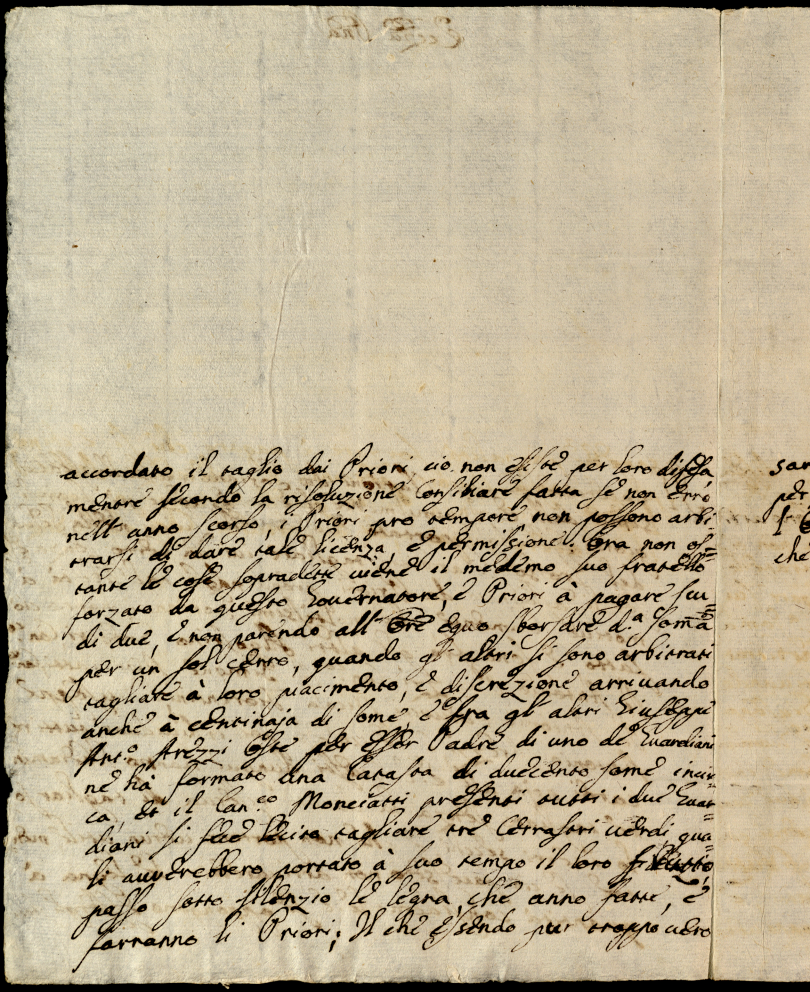 accordato il taglio dai Priori, ciò non esiste per loro difesa
mentre secondo la risoluzione Consiliare fatta se non erro
nell'anno scorso, i Priori pro tempore non possono arbi=
trarsi di dare tale licenza, e permissione. Ora non os=
tante le cose sopradette viene il medemo suo fratello
forzato da questo Governatore, e Priori à pagare scu=
di due, e non parendo all' Ore equo sborsare d.a somã
per un sol cerro, quando gl' altri si sono arbitrati
tagliare à loro piacimento, e discrezione arrivando
anche à centinaja di some, e fra gl' altri Giuseppe
Ant.o Arezzi Este per esser Padre di uno de Guardiani
ne hà formato una Catasta di duecento some incir=
ca, et il Can.co Monciatti presenti tutti i due Guar=
diani si fece lecito tagliare tre Cerrastri verdi qua=
li avverebbero portato à suo tempo il loro frutto,
passo sotto silenzio le legna, che anno fatte, e
farranno li Priori; Il che essendo pur troppo vero
sar
per
che